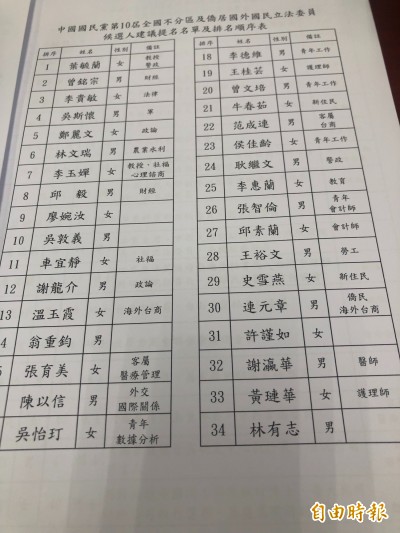 中國國民黨第10屆全國不分區及僑居國外國民立法委員
候選人建議提名名單及排名順序表
排序 姓名 性別 備註
1 葉毓蘭 女 教授 警政
2 曾銘宗 男 財經
3 李貴敏 女 法律
4 吳斯懷 男 軍
5 鄭麗文 女 政論
6 林文瑞 男 農業水利
7 李玉嬋 女 教授、社福 心理諮商
8 邱毅 男 財經
9 廖婉汝 女
10 吳敦義 男
11 車宜靜 女 社福
12 謝龍介 男 政論
13 溫玉霞 女 海外台商
4 翁重鈞 男
5 張育美 女 客屬 醫療管理
陳以信 男 外交 國際關係
吳怡玎 女 青年 數據分析
排序 姓名 性別 備註
18 李德維 男 青年工作
19 王桂芸 女 護理師
20 曾文培 男 青年工作
21 牛春茹 女 新住民
22 范成連 男 客屬 台商
23 侯佳齡 女 青年工作
24 耿繼文 男 警政
25 李惠蘭 女 教育
26 張智倫 男 青年 會計師
27 邱素蘭 女 會計師
28 王裕文 男 勞工
29 史雪燕 女 新住民
30 連元章 男 僑民 海外台商
31 許謹如 女
32 謝瀛華 男 醫師
33 黃璉華 女 護理師
34 林有志 男
自由時報